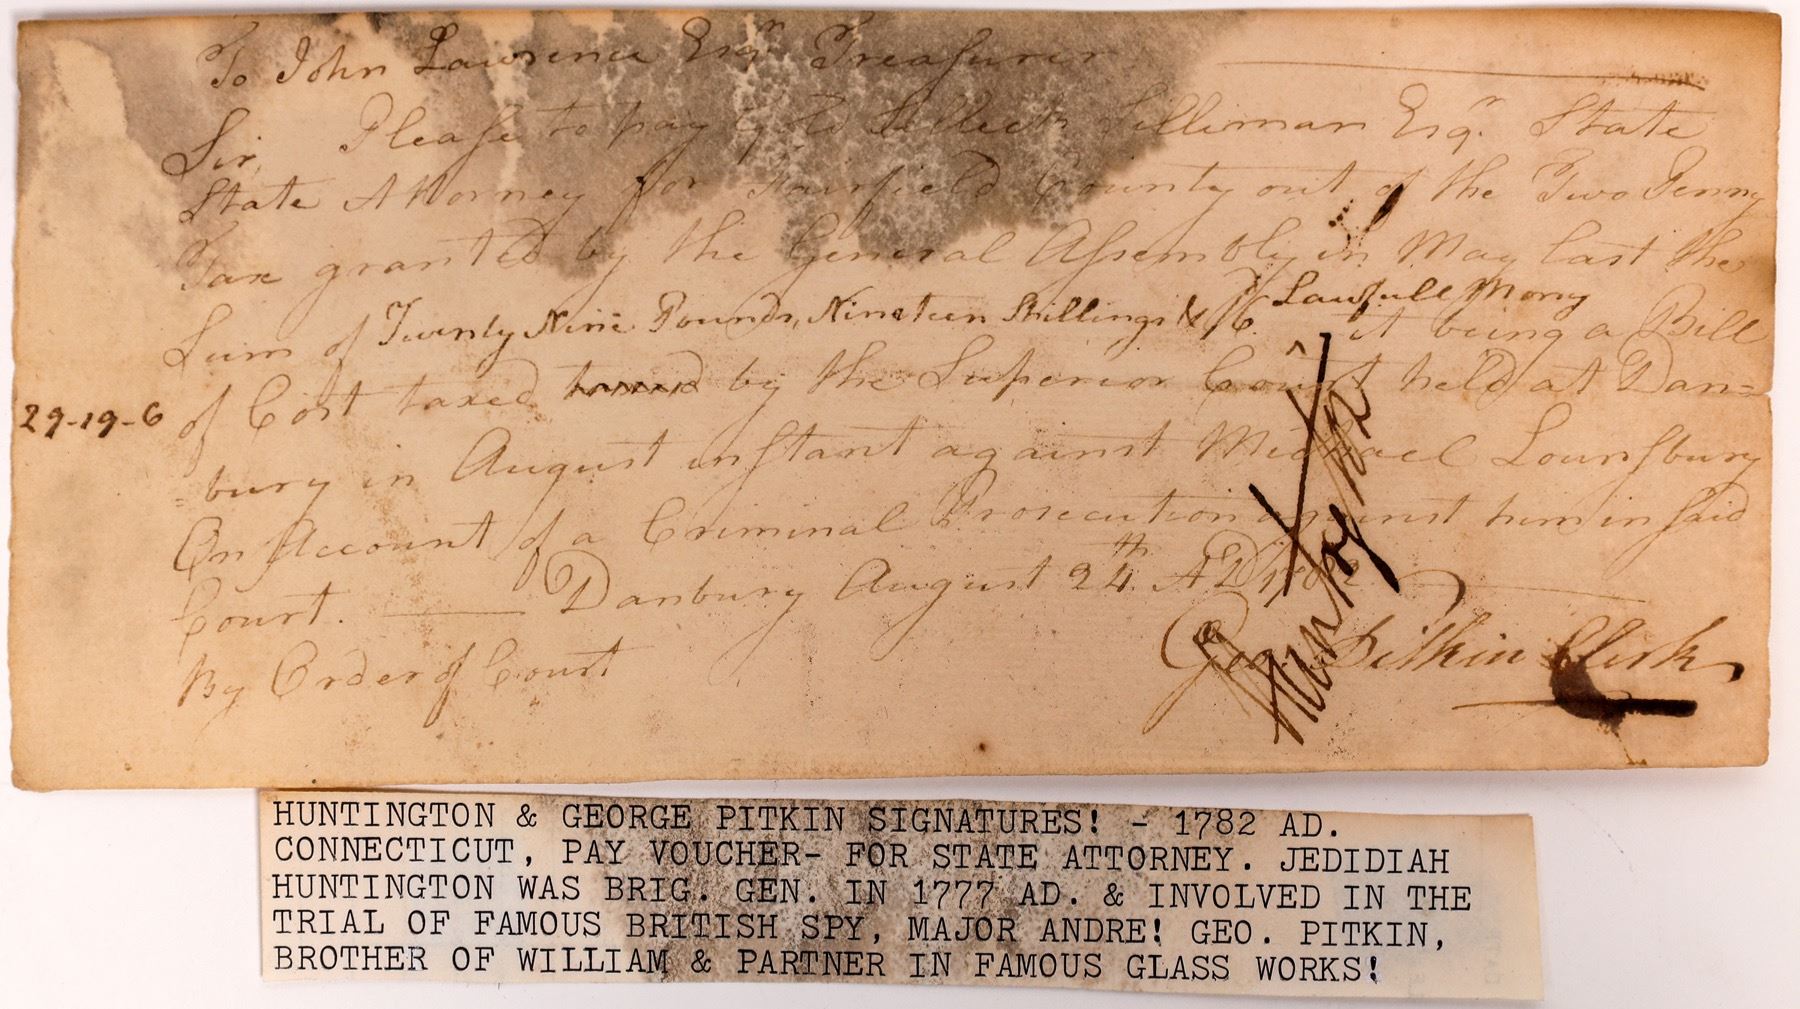 To John Lawrence Esqr Treasurer
Sir, Please to pay Gold Selleck Silliman Esqr. State
State Attorney for Fairfield County out of the Two Penny
Tax granted by the General Assembly in May last the
Sum of Twenty Nine Pounds, Nineteen Shillings & /6 Lawfull Mony it being a Bill
29-19-6 of Cost taxed by the Superior Court held at Dan=
=bury in August instant against Michael Lounsbury
On Account of a Criminal Prosecution against him in said
Court. Danbury August 24th AD 1782
By Order of Court Geo Pitkin Clerk
Huntington
HUNTINGTON & GEORGE PITKIN SIGNATURES! - 1782 AD.
CONNECTICUT, PAY VOUCHER- FOR STATE ATTORNEY. JEDIDIAH
HUNTINGTON WAS BRIG. GEN. IN 1777 AD. & INVOLVED IN THE
TRIAL OF FAMOUS BRITISH SPY, MAJOR ANDRE! GEO. PITKIN,
BROTHER OF WILLIAM & PARTNER IN FAMOUS GLASS WORKS!